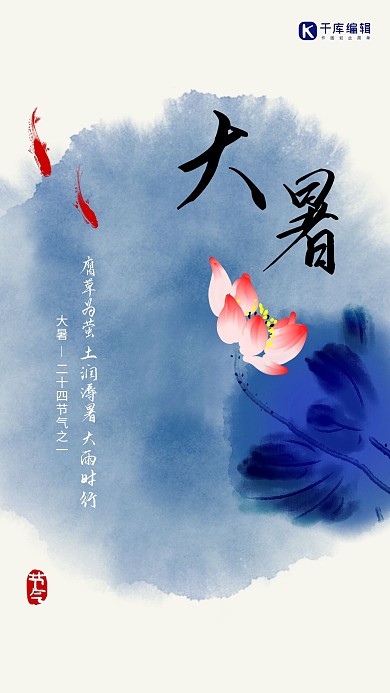 千库编辑
大暑
腐草为萤 土润溽暑 大雨时行
大暑—二十四节气之一
节气